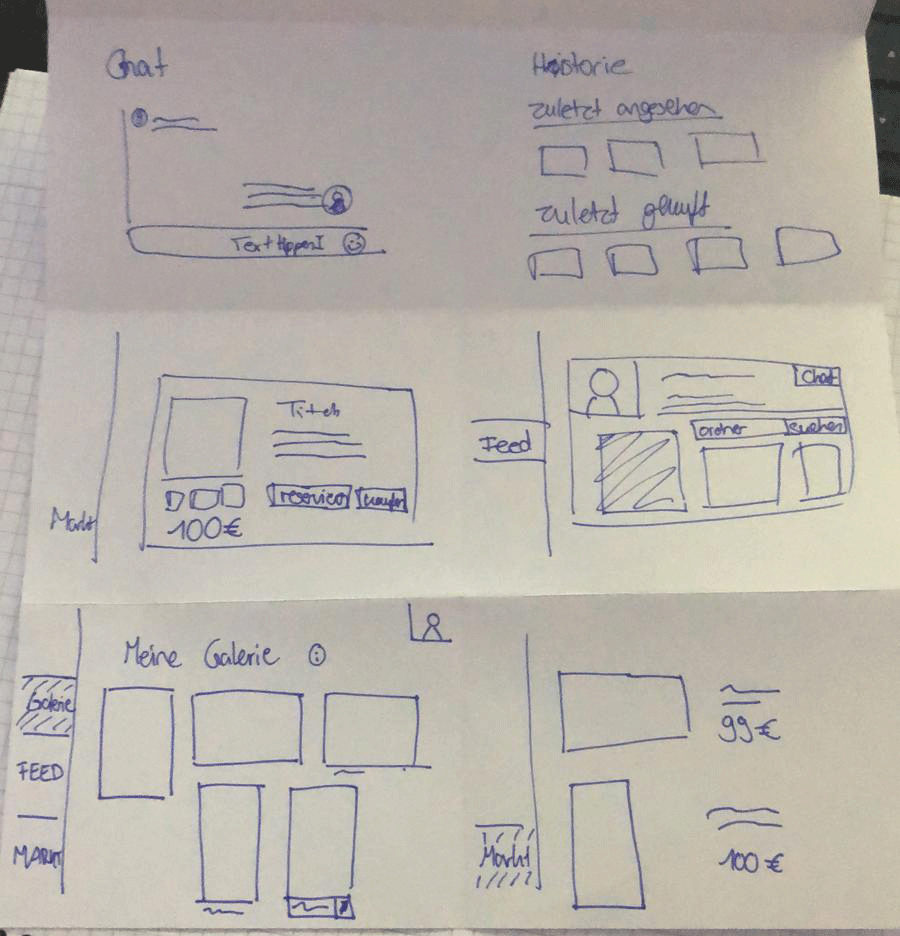 Chat
Text tippen I
Historie
zuletzt angesehen
zuletzt gekauft
Markt
Titel
reservieren
kaufen
100€
Feed
Chat
ordner
suchen
Meine Galerie
Galerie
FEED
MARKT
99€
Markt
100€